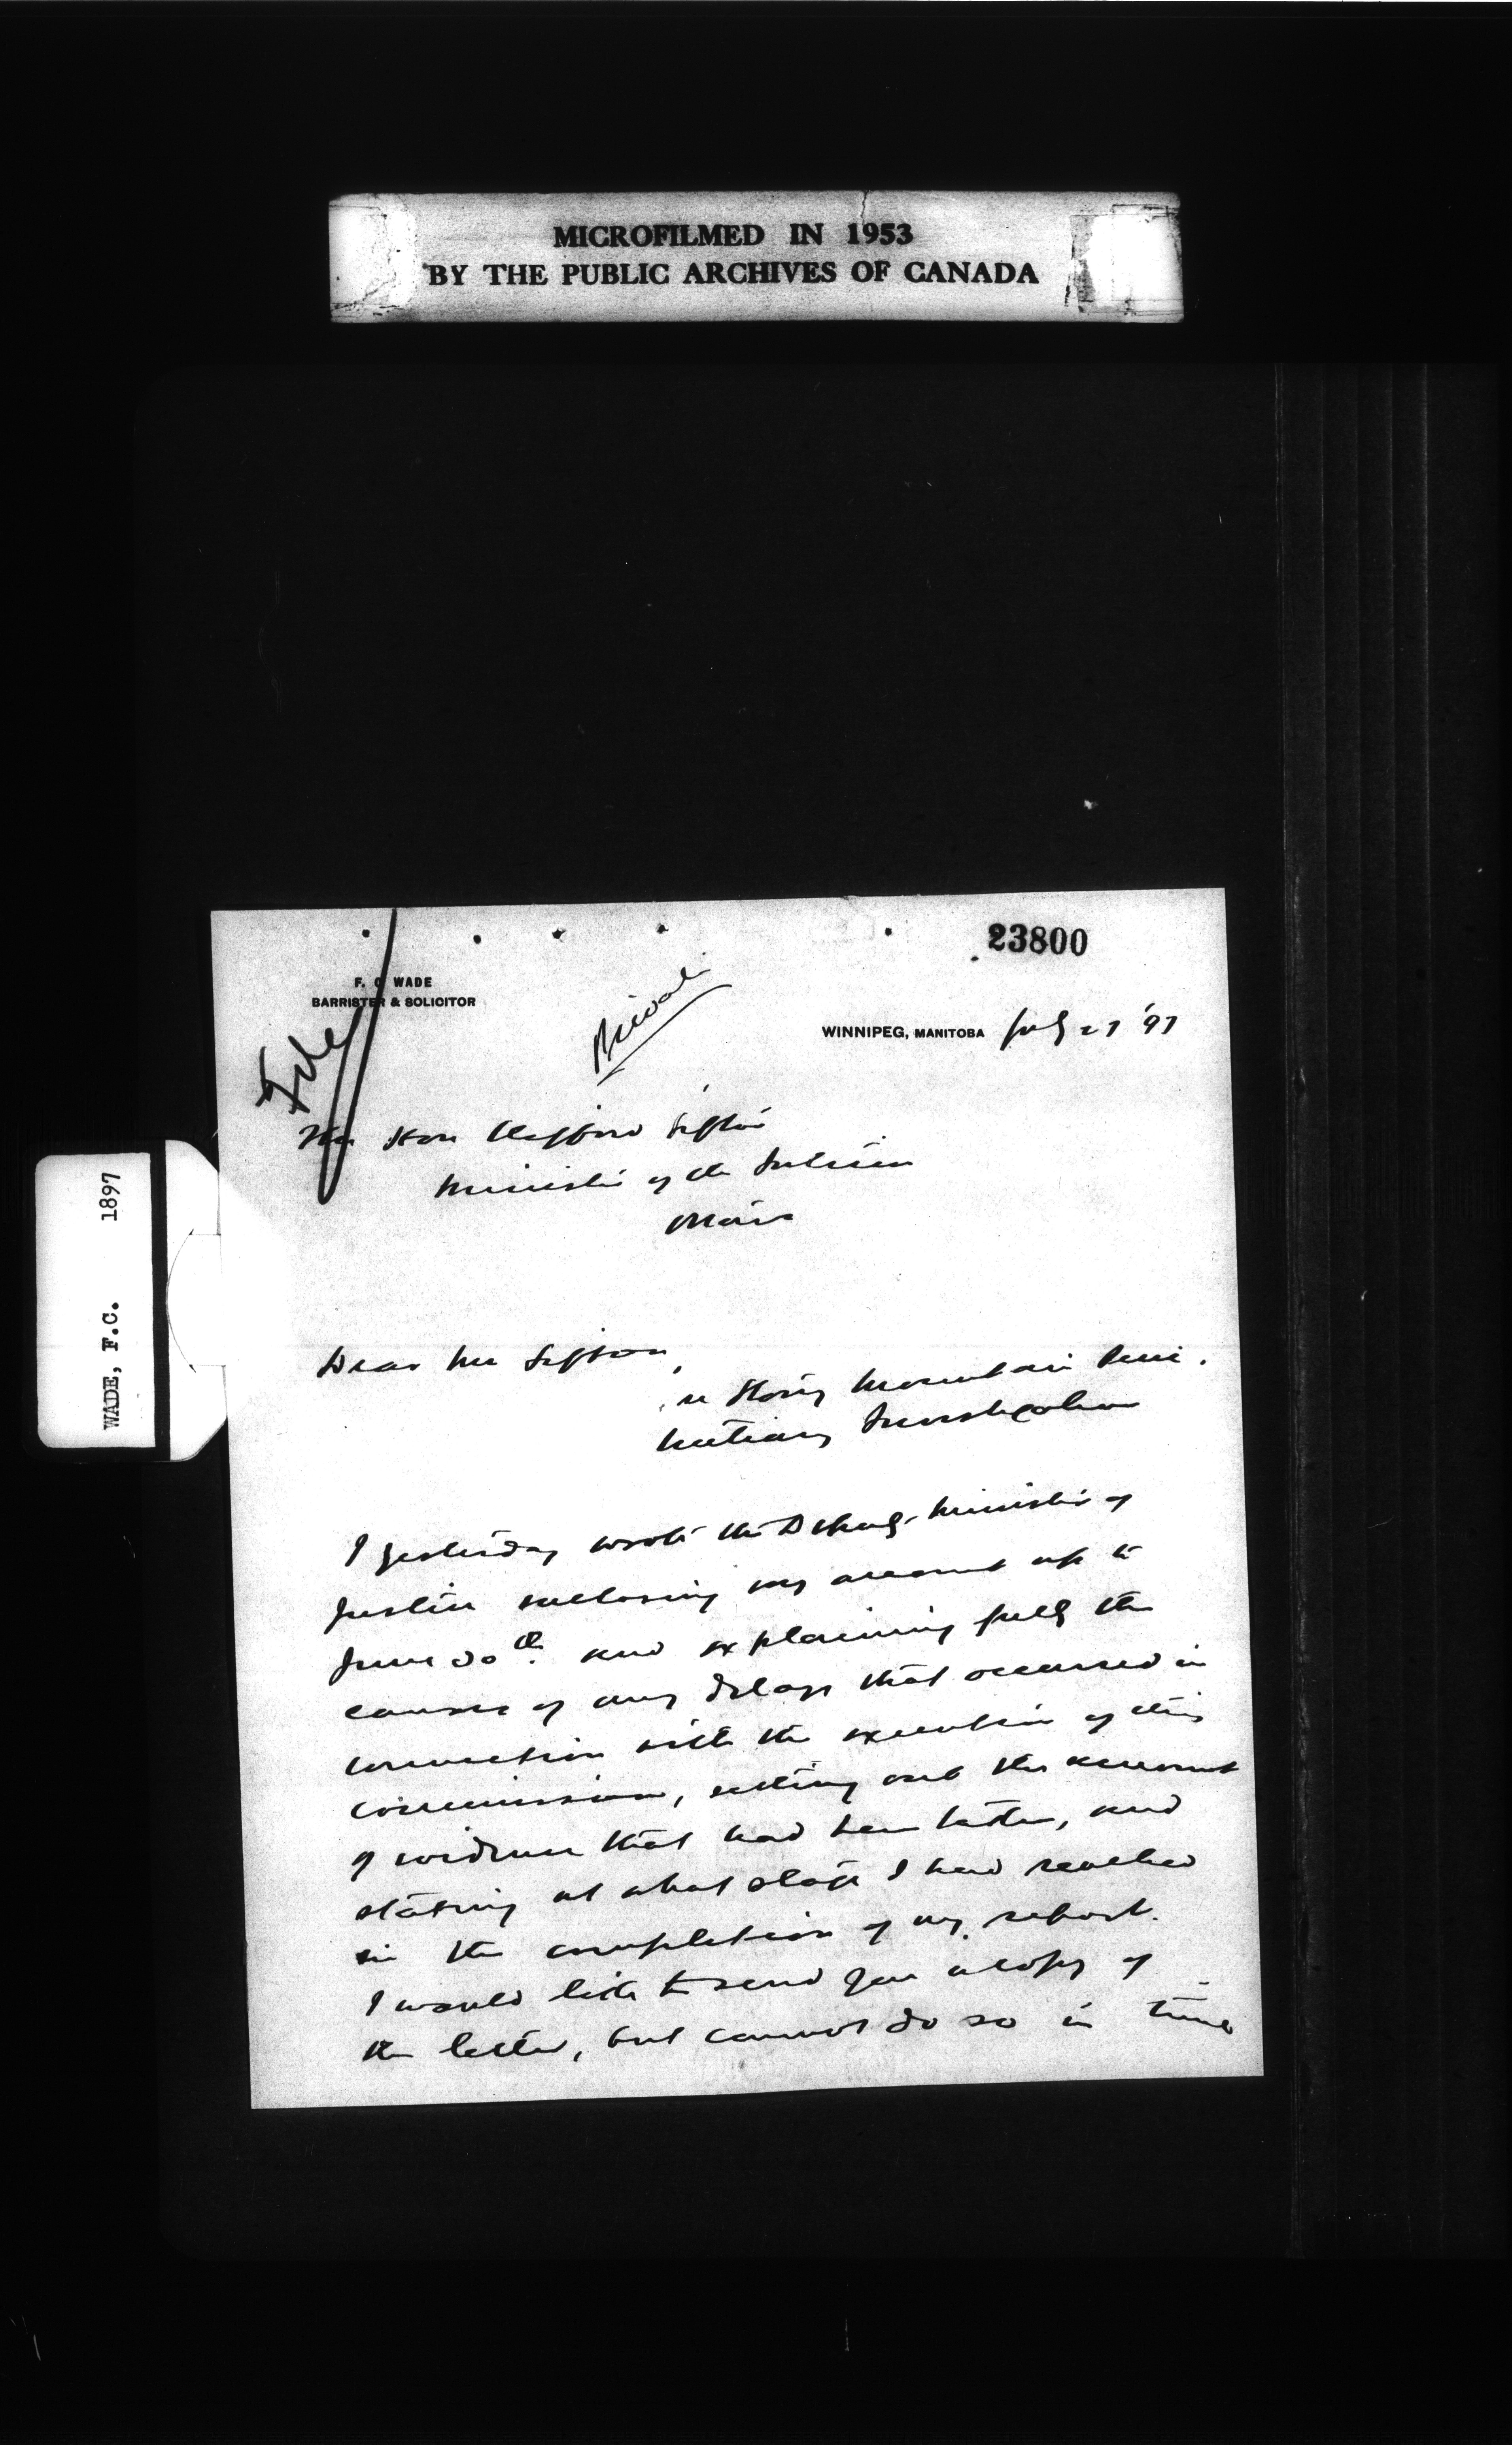 MICROFILMED IN 1953
BY THE PUBLIC ARCHIVES OF CANADA
23800
F. C WADE
BARRISTER & SOLICITOR
File
Private
WINNIPEG, MANITOBA July 27 '97
The Hon Clifford Sifton
Minister of the Interior
Ottawa
WADE, F.C. 1897
Dear Mr Sifton,
re Stony Mountain Peni-
tentiary Investigation
I yesterday wrote the Deputy Minister of
Justice enclosing my account up to
June 30th. and explaining fully the
causes of any delays that occurred in
connection with the execution of this
commission, setting out the amount
of evidence that had been taken, and
stating at what stage I had reached
in the completion of my report.
I would like to send you a copy of
the letter, but cannot do so in time